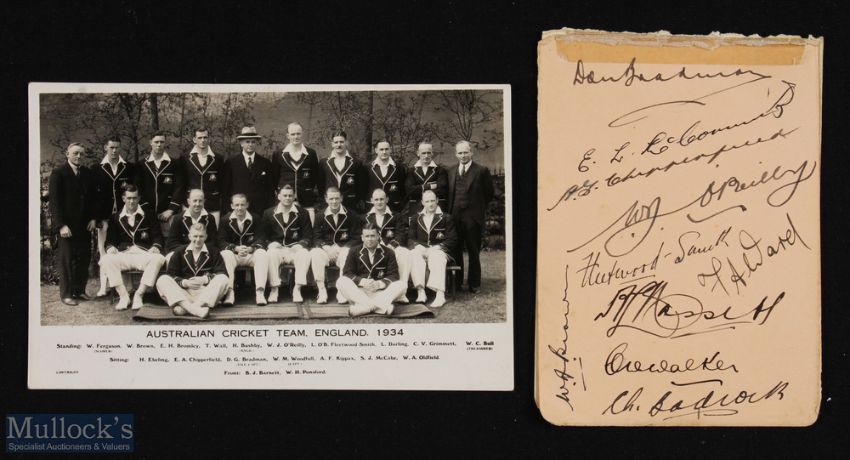 AUSTRALIAN CRICKET TEAM, ENGLAND, 1934
Standing: W. Ferguson, W. Brown, E. H. Bromley, T. Wall, H. Bushby, W. J. O'Reilly, L. O'B. Fleetwood-Smith, L. Darling, C. V. Grimmett, W. C. Bull
(SCORER) (TREASURER)
Sitting: H. Ebeling, E. A. Chipperfield, D. G. Bradman, W. M. Woodfull, A. F. Kippax, S. J. McCabe, W. A. Oldfield.
Front: B. J. Barnett, W. H. Ponsford.
COPYRIGHT
Don Bradman
E. L. McCormick
A.G. Chipperfield
W.J. O'Reilly
Fleetwood-Smith
F A Ward
W.A. Brown
C W Walker
Ch. Badcock
Mullock's
Specialist Auctioneers & Valuers